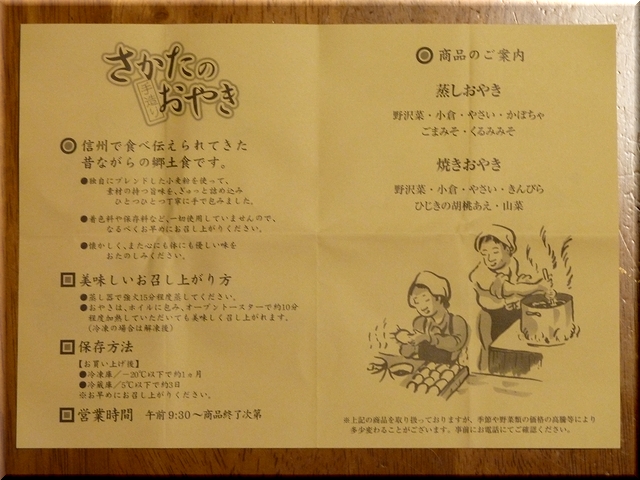 さかたの
手造り
おやき
信州で食べ伝えられてきた
昔ながらの郷土食です。
●独自にブレンドした小麦粉を使って、
素材の持つ旨味を、ぎゅっと詰め込み
ひとつひとつ丁寧に手で包みました。
●着色料や保存料など、一切使用していませんので、
なるべくお早めにお召し上がりください。
●懐かしく、また心にも体にも優しい味を
おたのしみください。
美味しいお召し上がり方
●蒸し器で強火15分程度蒸してください。
●おやきは、ホイルに包み、オーブントースターで約10分
程度加熱していただいても美味しく召し上がれます。
(冷凍の場合は解凍後)
保存方法
【お買い上げ後】
●冷凍庫/−20℃以下で約1ヵ月
●冷蔵庫/5℃以下で約3日
※お早めにお召し上がりください。
営業時間 午前9:30〜商品終了次第
商品のご案内
蒸しおやき
野沢菜・小倉・やさい・かぼちゃ
ごまみそ・くるみみそ
焼きおやき
野沢菜・小倉・やさい・きんぴら
ひじきの胡桃あえ・山菜
※上記の商品を取り扱っておりますが、季節や野菜類の価格の高騰等により
多少変わることがございます。事前にお電話にてご確認ください。